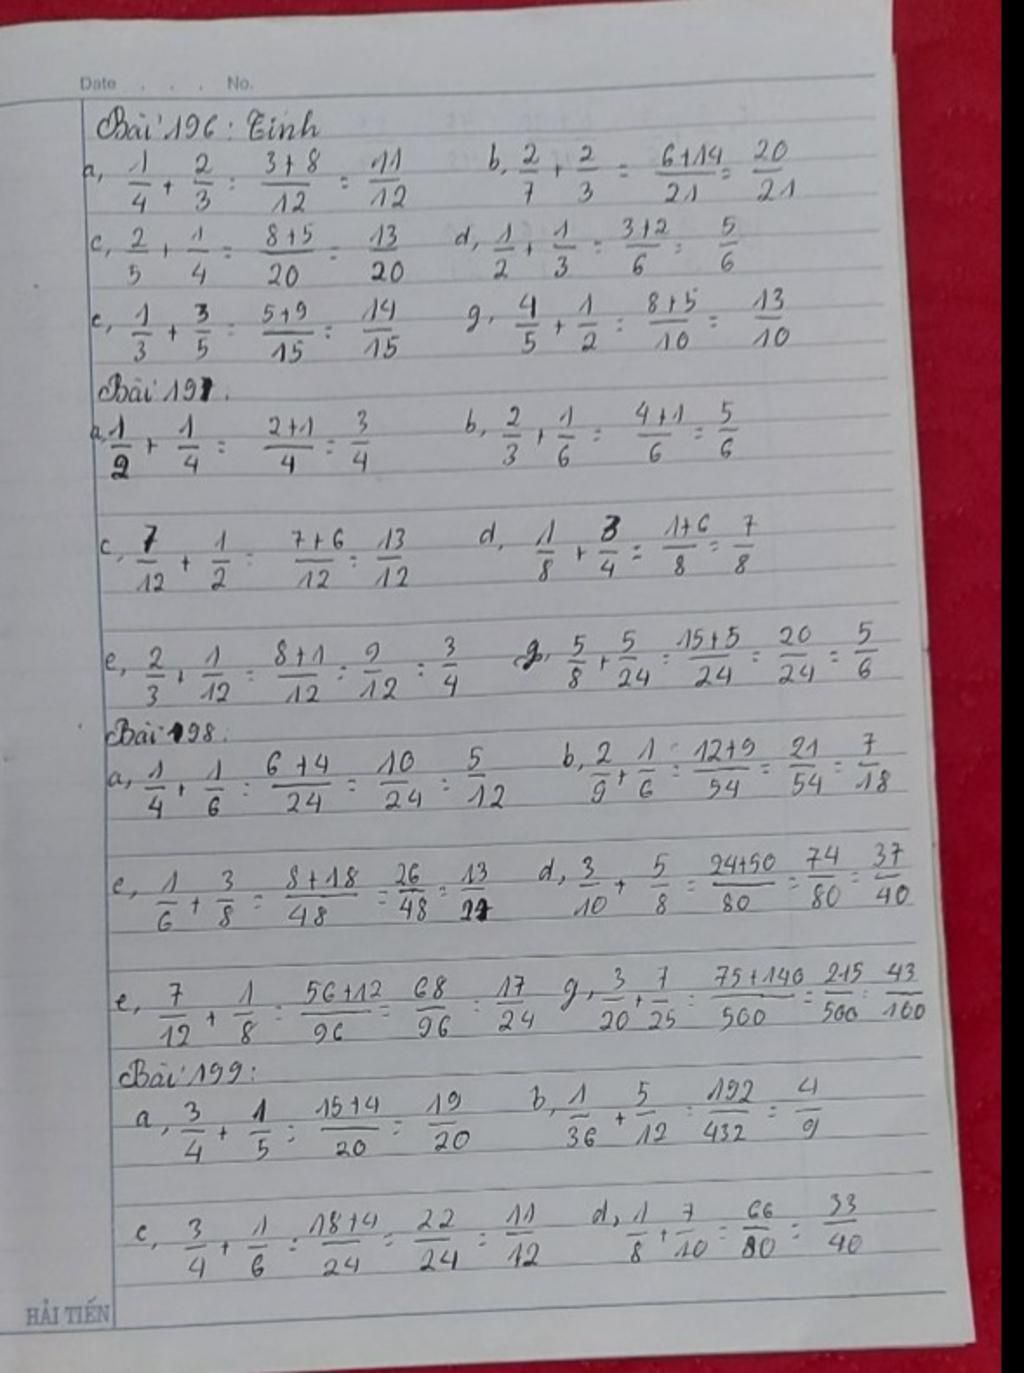 Date . . . No.
Bài 196: Tính
a, 1/4 + 2/3 = 3+8/12 = 11/12 b, 2/7 + 2/3 = 6+14/21 = 20/21
c, 2/5 + 1/4 = 8+5/20 = 13/20 d, 1/2 + 1/3 = 3+2/6 = 5/6
e, 1/3 + 3/5 = 5+9/15 = 14/15 g, 4/5 + 1/2 = 8+5/10 = 13/10
Bài 197:
a, 1/2 + 1/4 = 2+1/4 = 3/4 b, 2/3 + 1/6 = 4+1/6 = 5/6
c, 7/12 + 1/2 = 7+6/12 = 13/12 d, 1/8 + 3/4 = 1+6/8 = 7/8
e, 2/3 + 1/12 = 8+1/12 = 9/12 = 3/4 g, 5/8 + 5/24 = 15+5/24 = 20/24 = 5/6
Bài 198:
a, 1/4 + 1/6 = 6+4/24 = 10/24 = 5/12 b, 2/9 + 1/6 = 12+9/54 = 21/54 = 7/18
c, 1/6 + 3/8 = 8+18/48 = 26/48 = 13/ d, 3/10 + 5/8 = 24+50/80 = 74/80 = 37/40
e, 7/12 + 1/8 = 56+12/96 = 68/96 = 17/24 g, 3/20 + 7/25 = 75+140/500 = 215/500 = 43/100
Bài 199:
a, 3/4 + 1/5 = 15+4/20 = 19/20 b, 1/36 + 5/12 = 192/432 = 4/9
c, 3/4 + 1/6 = 18+4/24 = 22/24 = 11/12 d, 1/8 + 7/10 = 66/80 = 33/40
HẢI TIẾN